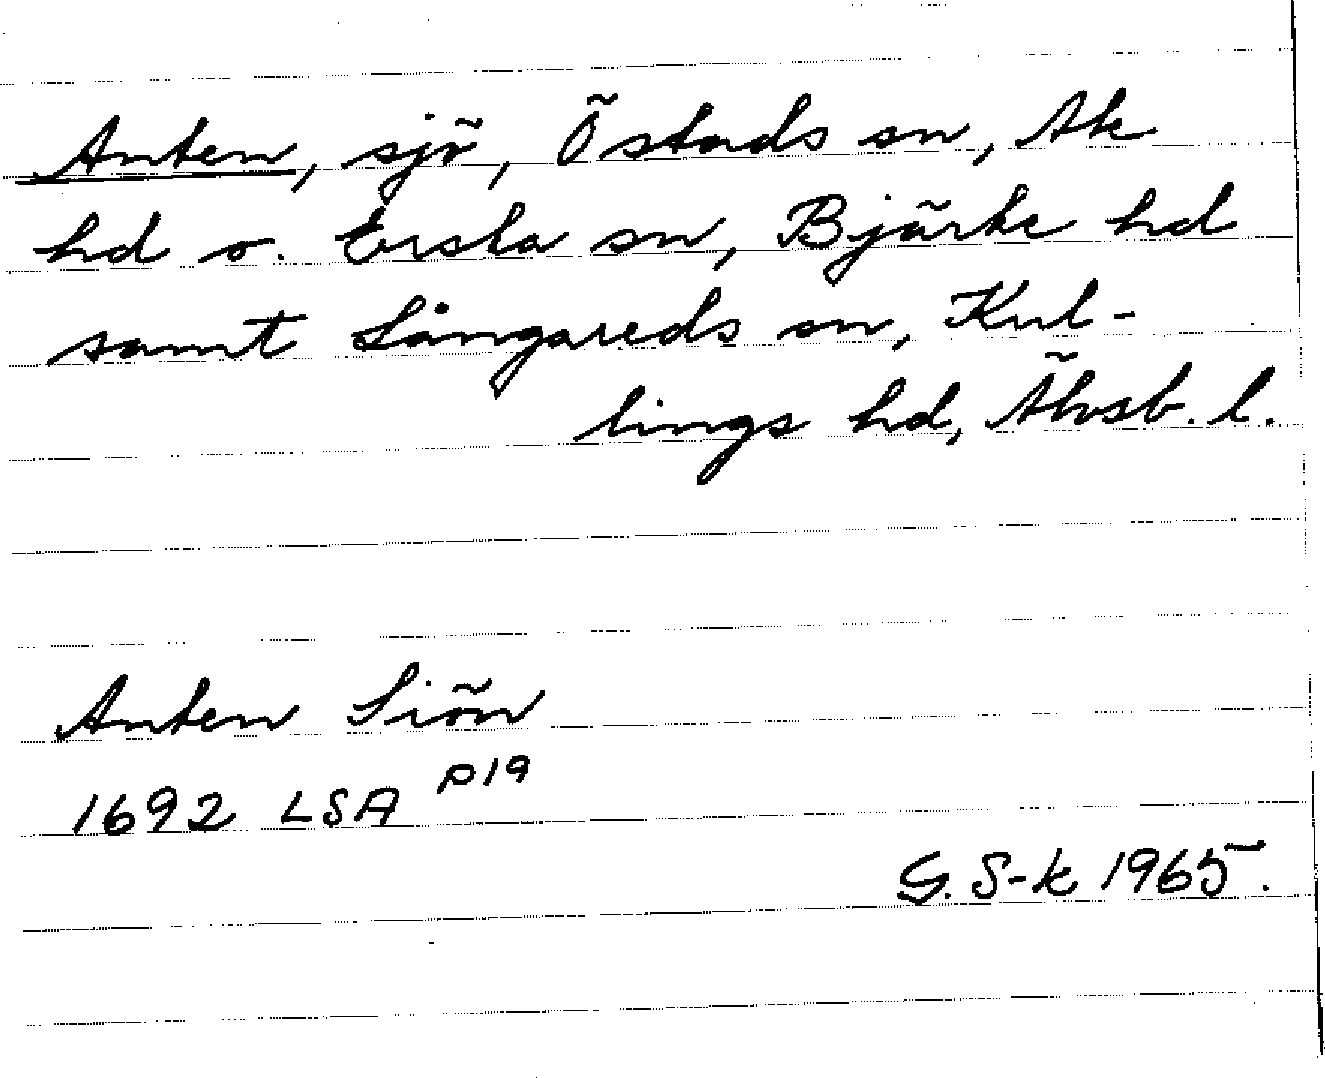 Anten, sjö, Östads sn, Ale
hd o. Erska sn, Bjärke hd
samt Långareds sn, Kul-
lings hd, Älvsb. l.
Anten Siön
1692 LSA P19
G. S-k 1965.